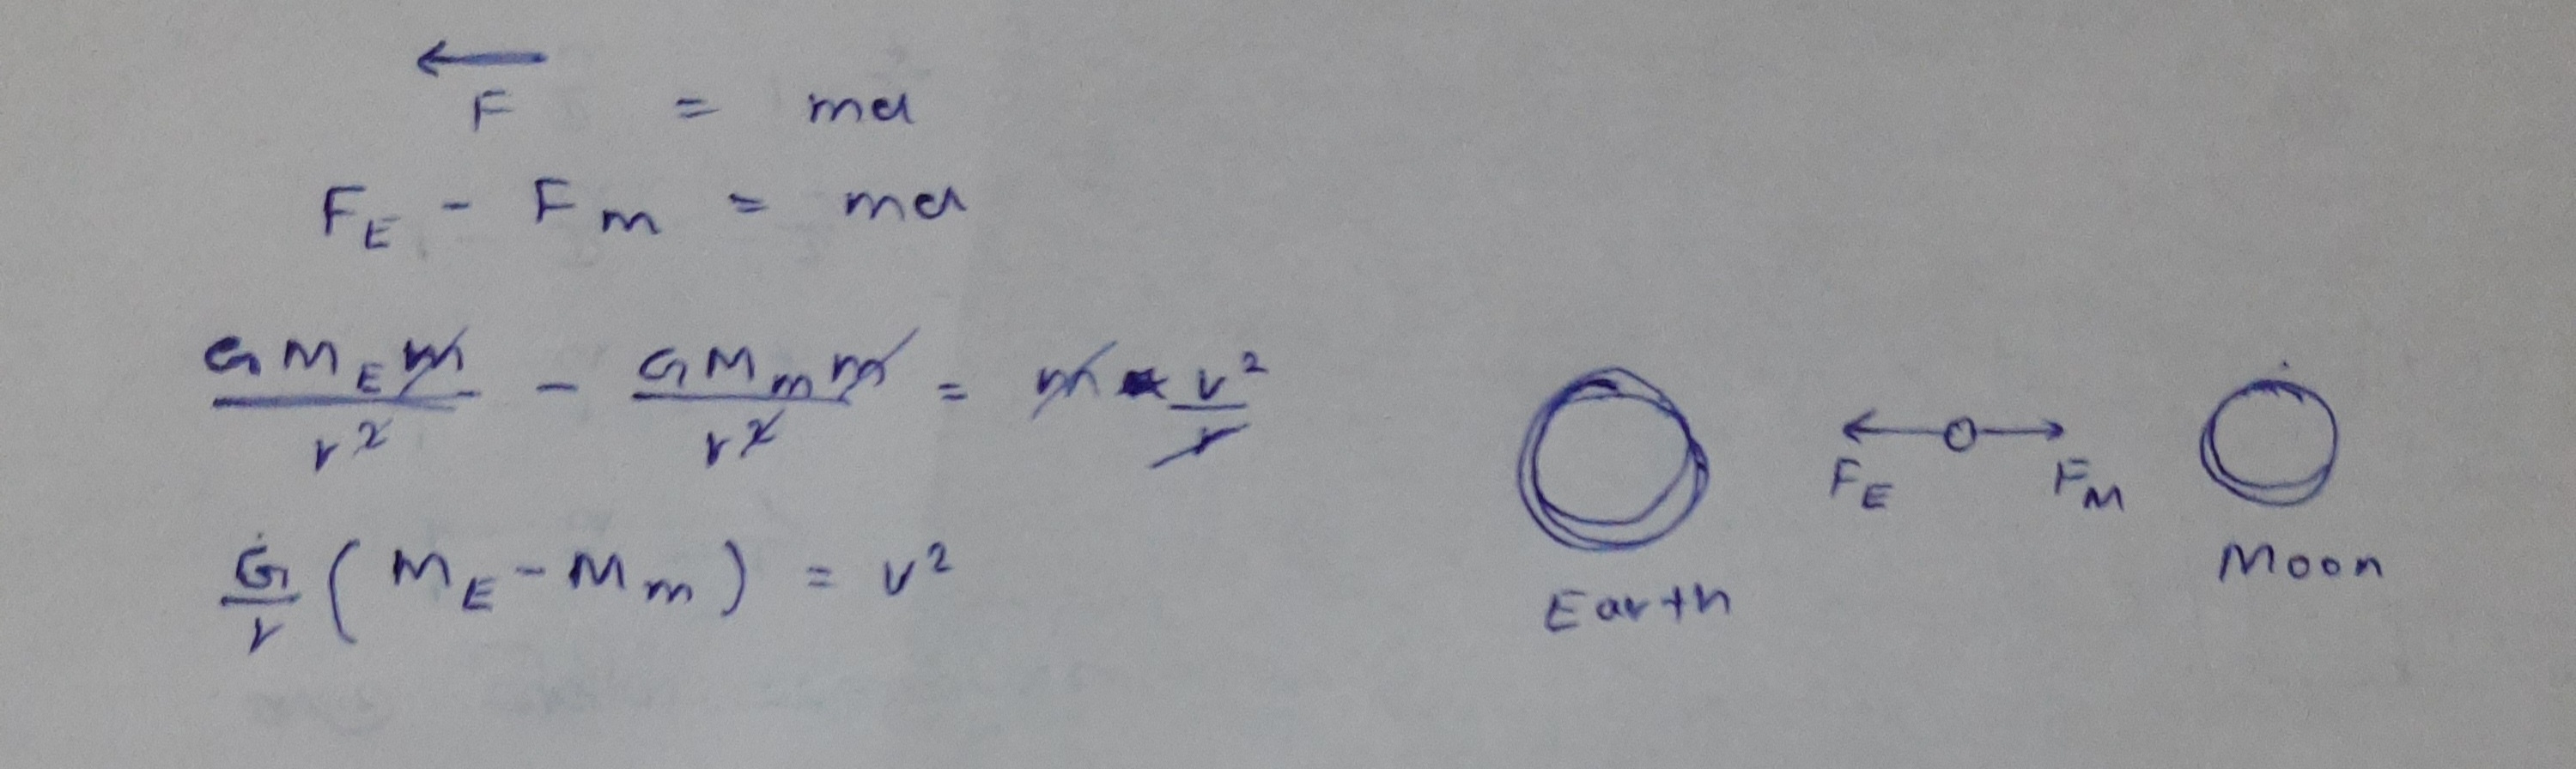 F = ma
F_E - F_m = ma
G M_E m / r² - G M_m m / r² = m v² / r
G / r ( M_E - M_m ) = v²
F_E F_M
Earth
Moon